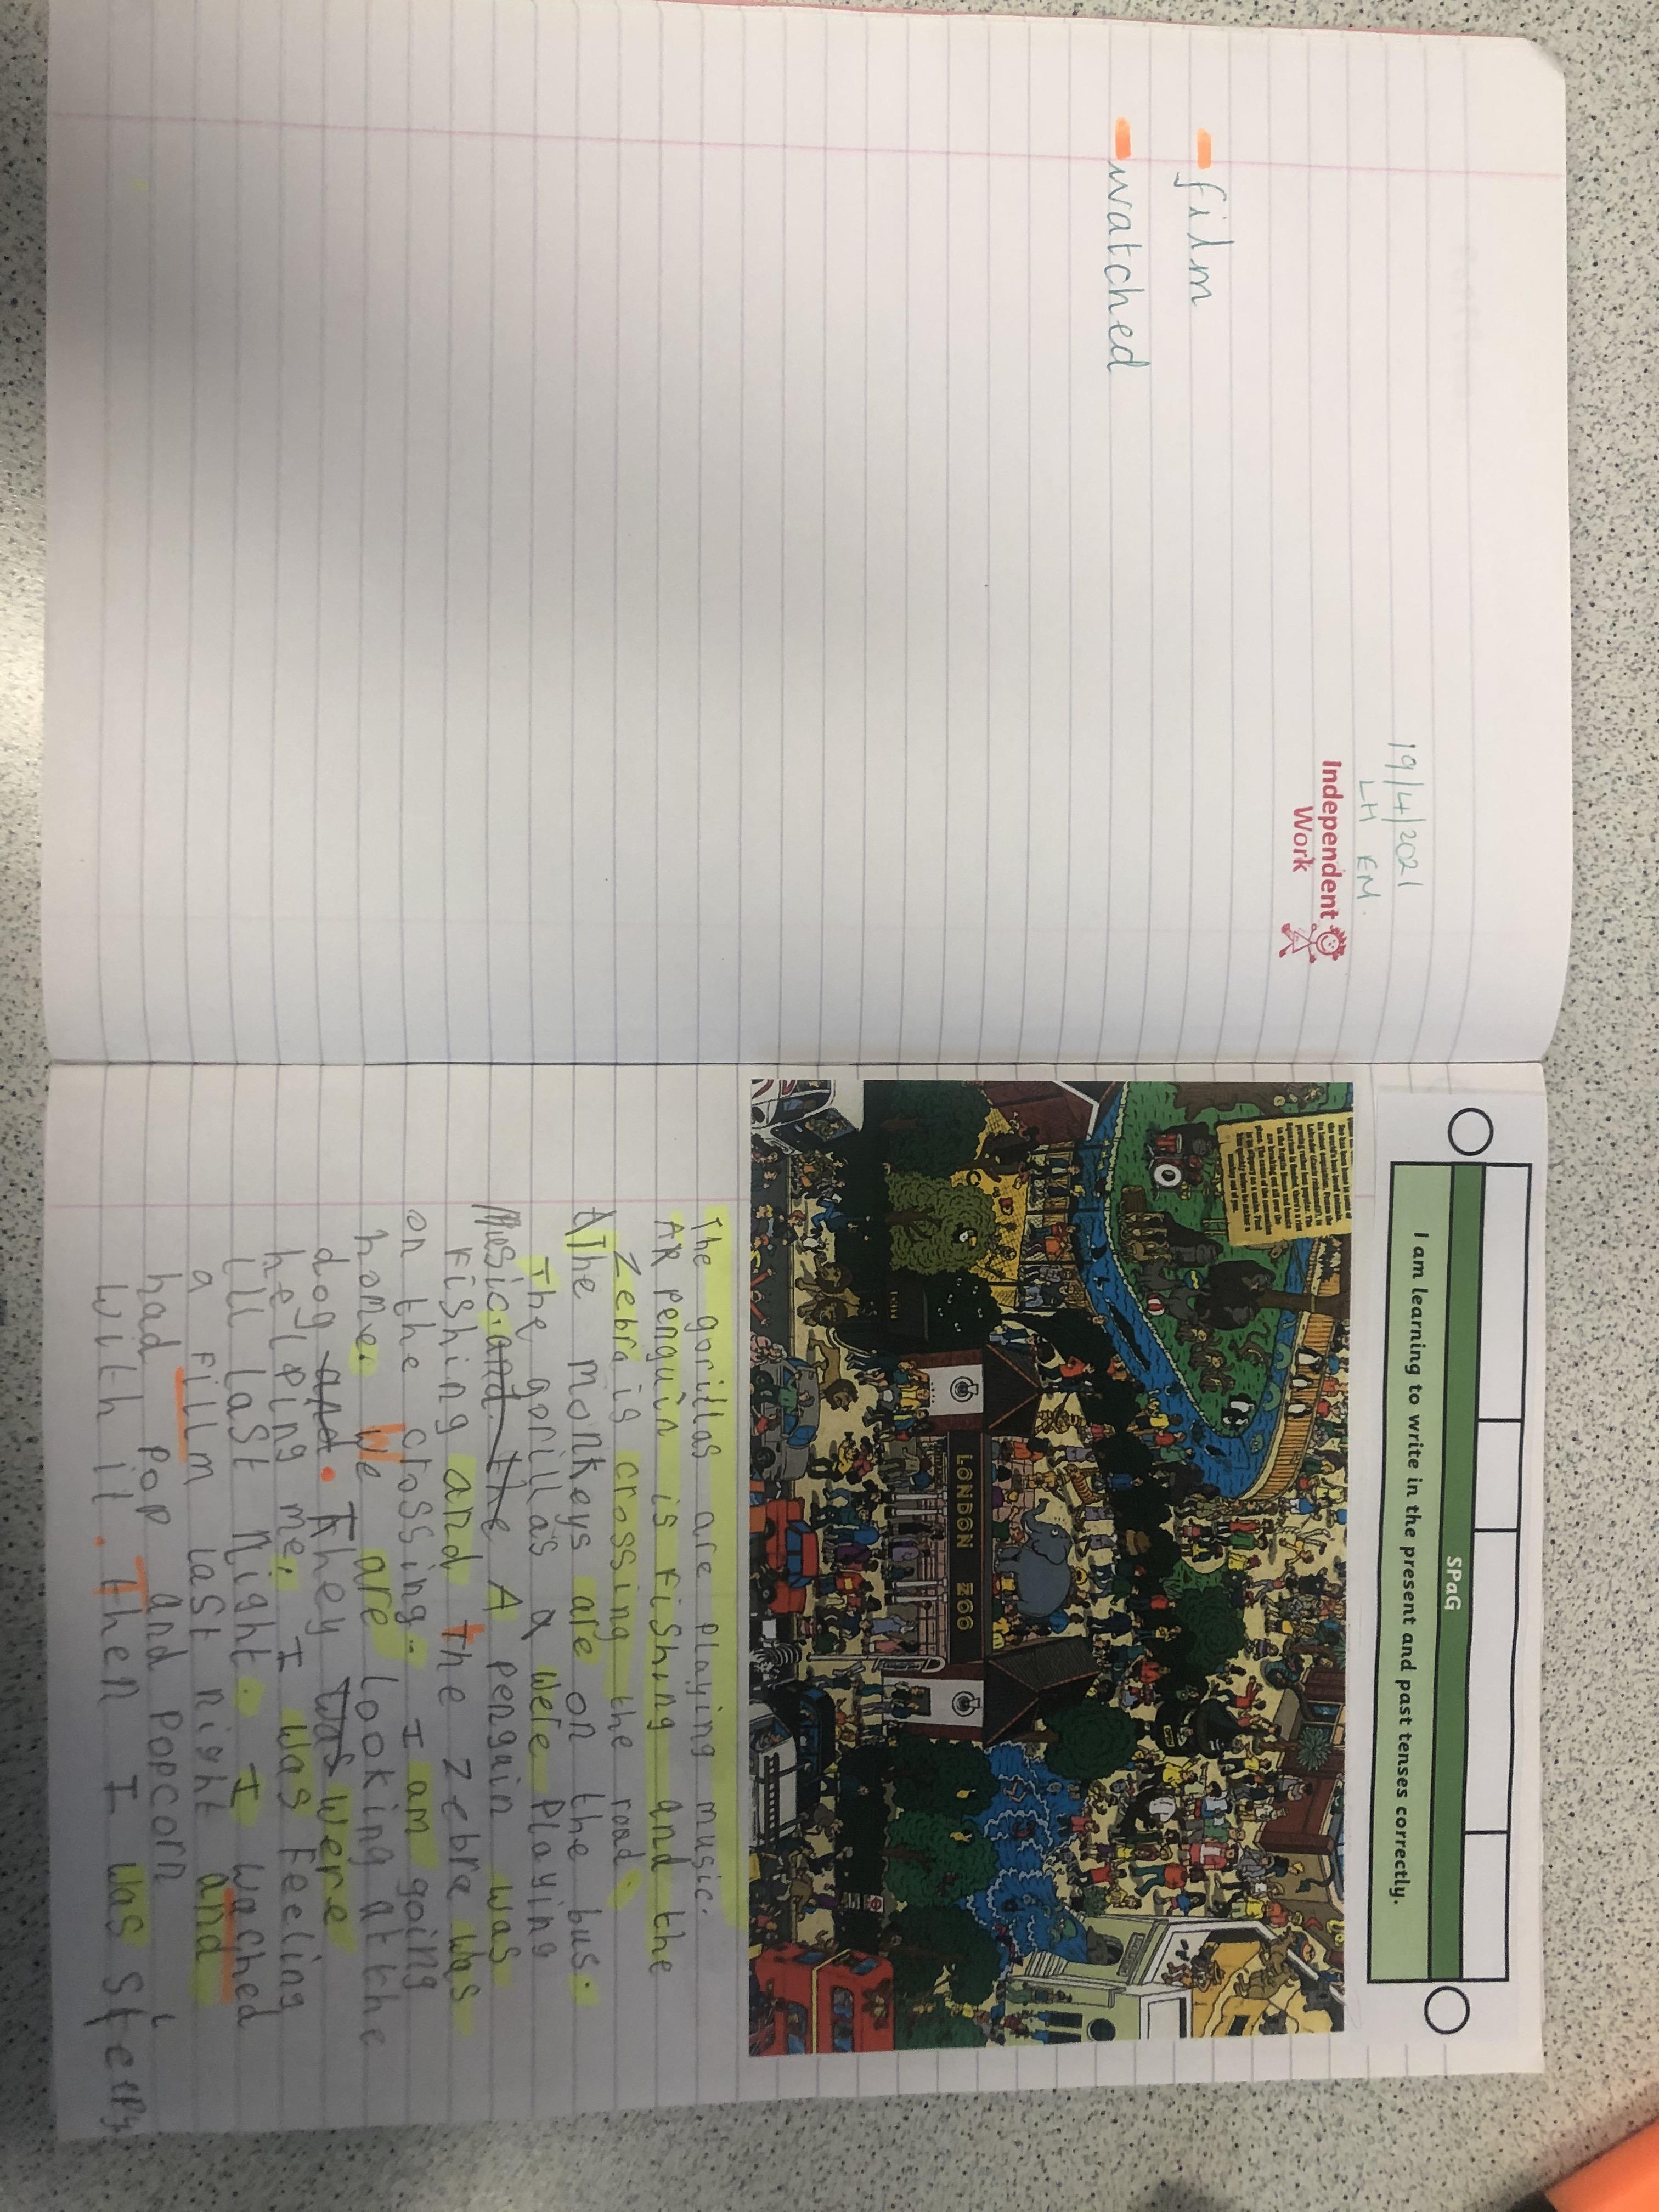 19/4/2021
LH EM.
Independent
Work
film
watched
SPaG
I am learning to write in the present and past tenses correctly.
LONDON ZOO
The gorillas are playing music.
AR penguin is fishing and the
Zebra is crossing the road.
The monkeys are on the bus.
The gorillas a were playing
Music. and the A penguin was
fishing and the zebra was
on the crossing. I am going
home. We are looking at the
dog and. They was were
helping me. I was feeling
ill last night. I wached
a fillm last night and i
had pop and popcorn
with it. then I was sleepy